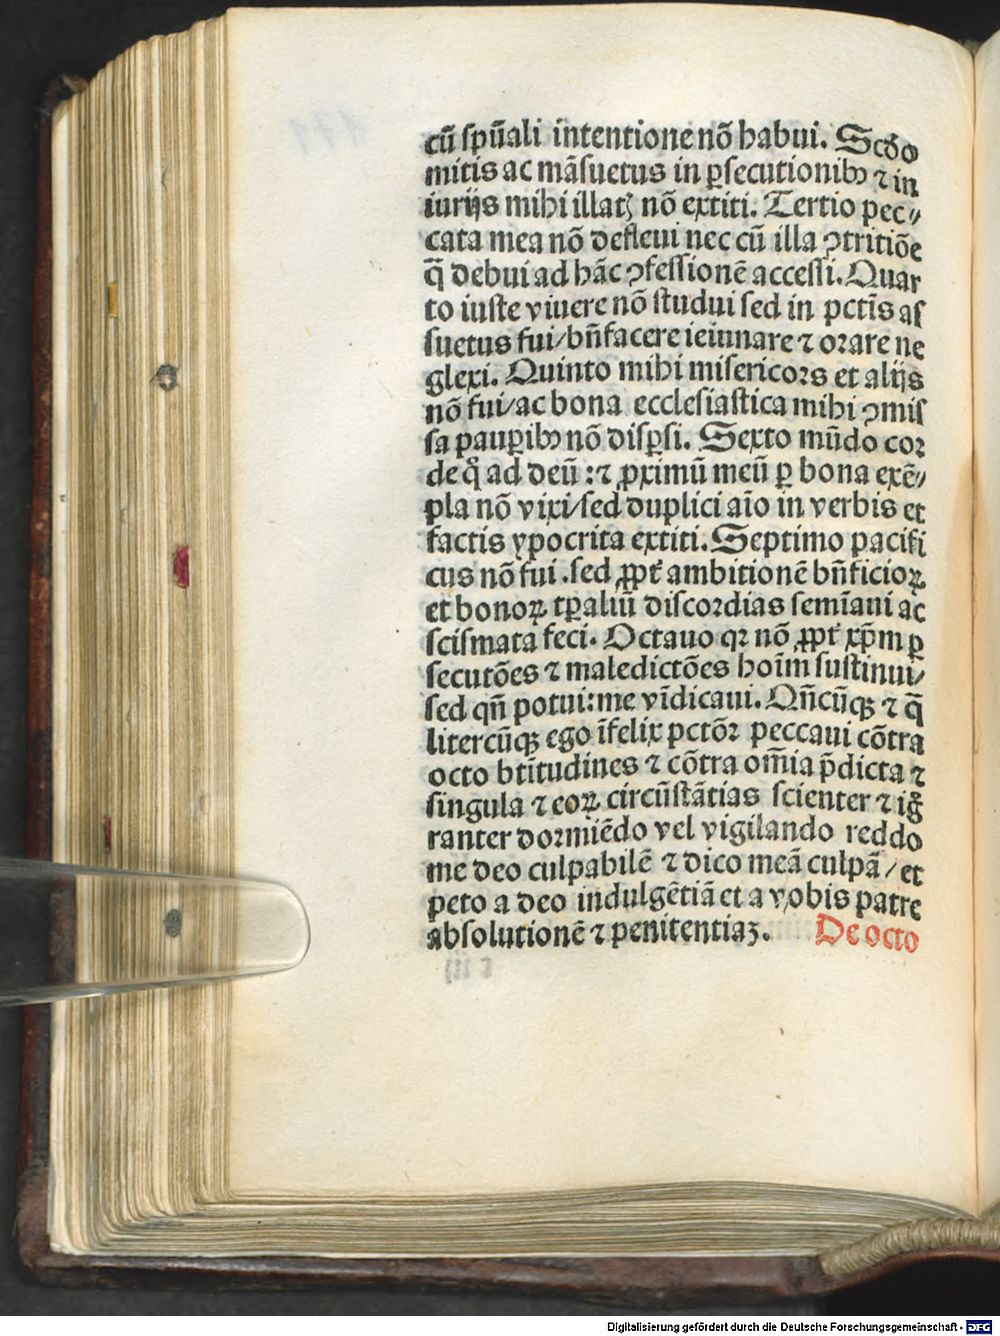 cū ſpūali intentione nō habui. Scdo
mitis ac māſuetus in ꝑſecutionibꝫ ⁊ in
iurijs mihi illatꝫ nō extiti. Tertio pec⸗
cata mea nō defleui nec cū illa ꝯtritiōe
q̄ debui ad hāc ꝯfeſſionē acceſſi. Quar
to iuſte viuere nō ſtudui ſed in pctīs aſ
ſuetus fui/bn̄facere ieiunare ⁊ orare ne
glexi. Quinto mihi miſericors et alijs
nō fui/ac bona eccleſiaſtica mihi ꝯmiſ
ſa pauꝑibꝫ nō diſꝑſi. Sexto mūdo cor
de qͦ ad deū :⁊ ꝓximū meū ꝑ bona exē⸗
pla nō vixi/ſed duplici aīo in verbis et
factis ypocrita extiti. Septimo pacifi
cus nō fui .ſed ꝓpt̄ ambitionē bn̄ficioꝝ
et bonoꝝ tꝑaliū diſcordias ſemīaui ac
ſciſmata feci. Octauo qꝛ nō ꝓpt̄ xp̄m ꝑ
ſecutōes ⁊ maledictōes hoīm ſuſtinui/
ſed qn̄ potui:me vīdicaui. Qn̄cūqꝫ ⁊ q̄
litercūqꝫ ego īfelix pctōr peccaui cōtra
octo btītudines ⁊ cōtra om̄ia p̄dicta ⁊
ſingula ⁊ eoꝝ circūſtātias ſcienter ⁊ igͦ
ranter dormiēdo vel vigilando reddo
me deo culpabilē ⁊ dico meā culpā/et
peto a deo indulgētiā et a vobis patre
abſolutionē ⁊ penitentiaꝫ. De octo
Digitalisierung gefördert durch die Deutsche Forschungsgemeinschaft - DFG